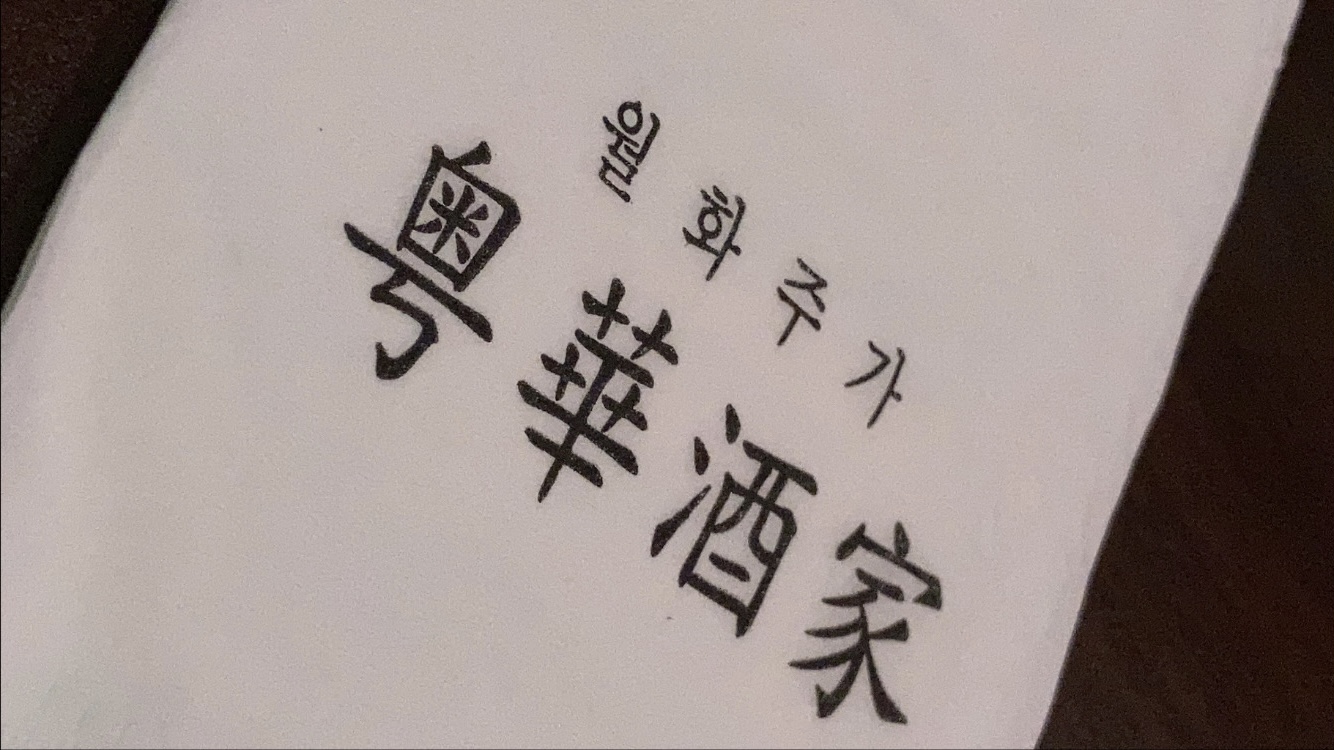 월화주가
粤華酒家